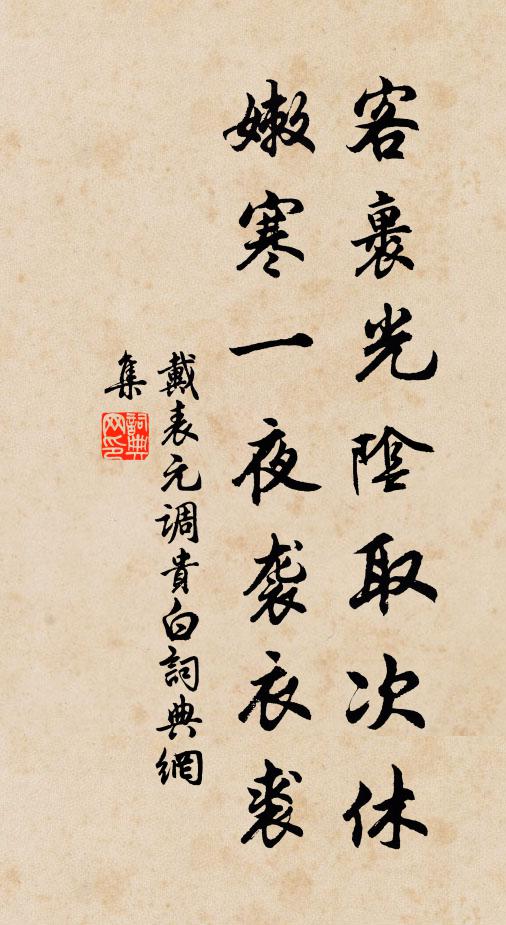 客裏光陰取次休
嫩寒一夜袭衣裘
戴表元调貴白詞典網
集
詞典网印